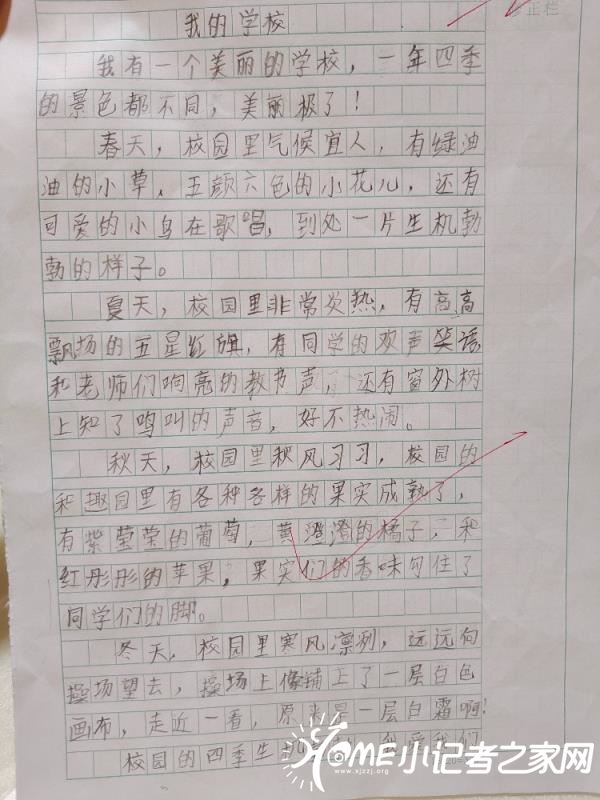 修正栏
我的学校
我有一个美丽的学校，一年四季
的景色都不同，美丽极了！
春天，校园里气候宜人，有绿油
油的小草，五颜六色的小花儿，还有
可爱的小鸟在歌唱，到处一片生机勃
勃的样子。
夏天，校园里非常炎热，有高高
飘扬的五星红旗，有同学的欢声笑语
和老师们响亮的教书声，还有窗外树
上知了鸣叫的声音，好不热闹。
秋天，校园里秋风习习，校园的
和趣园里有各种各样的果实成熟了，
有紫莹莹的葡萄，黄澄澄的橘子，和
红彤彤的苹果，果实们的香味勾住了
同学们的脚。
冬天，校园里寒风凛冽，远远向
操场望去，操场上像铺上了一层白色
画布，走近一看，原来是一层白霜啊！
校园的四季生机 我爱我们
HOME小记者之家网
www.xjzzj.org